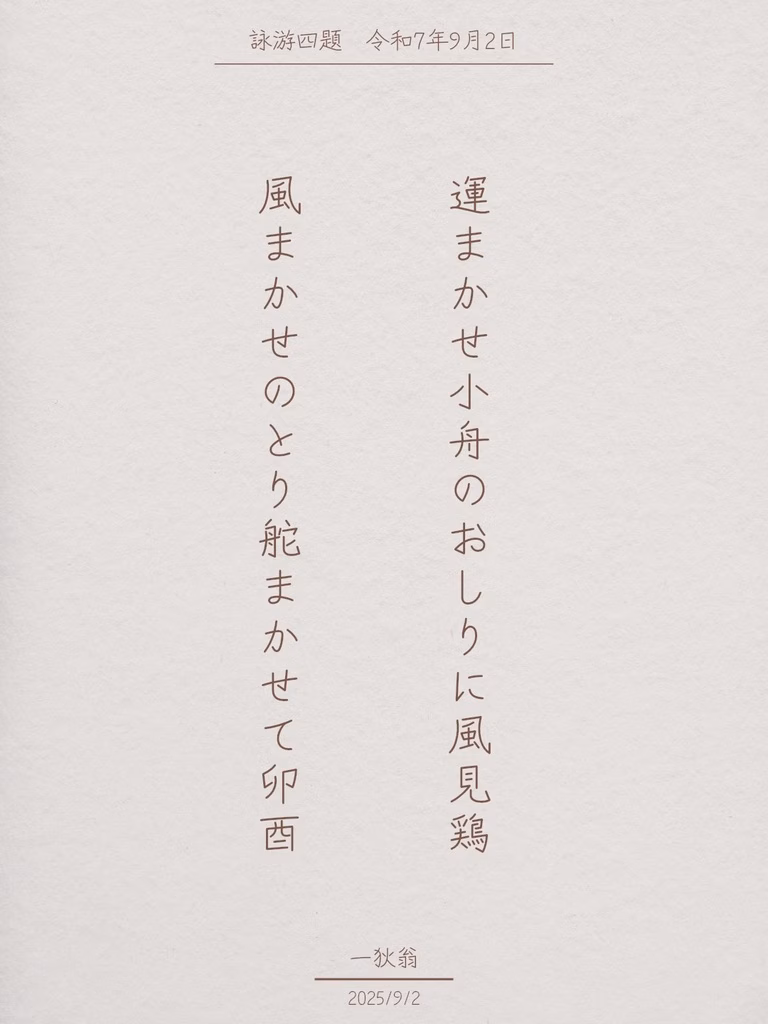 詠游四題　令和7年9月2日
運まかせ小舟のおしりに風見鶏
風まかせのとり舵まかせて卯酉
一狄翁
2025/9/2